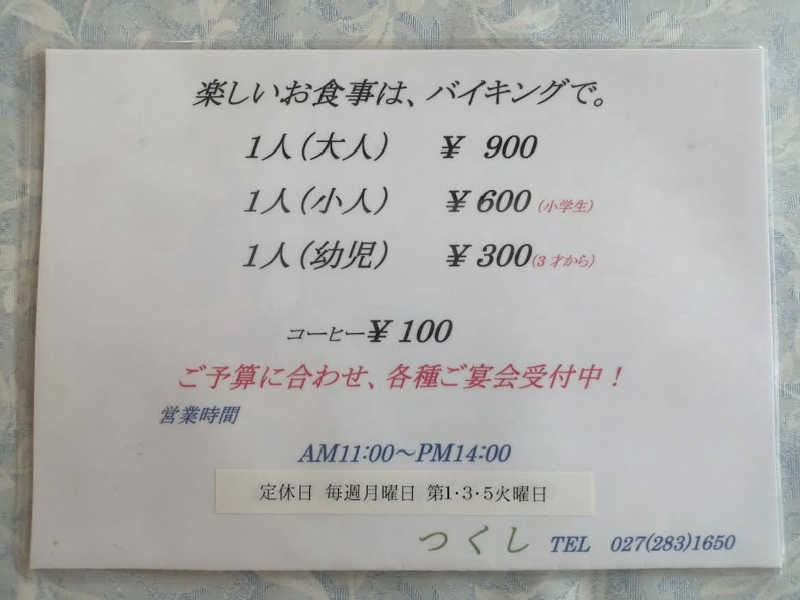 楽しいお食事は、バイキングで。
1人（大人） ¥ 900
1人（小人） ¥ 600 （小学生）
1人（幼児） ¥ 300（3才から）
コーヒー¥ 100
ご予算に合わせ、各種ご宴会受付中！
営業時間
AM11:00～PM14:00
定休日 毎週月曜日 第1・3・5火曜日
つくし TEL 027(283)1650